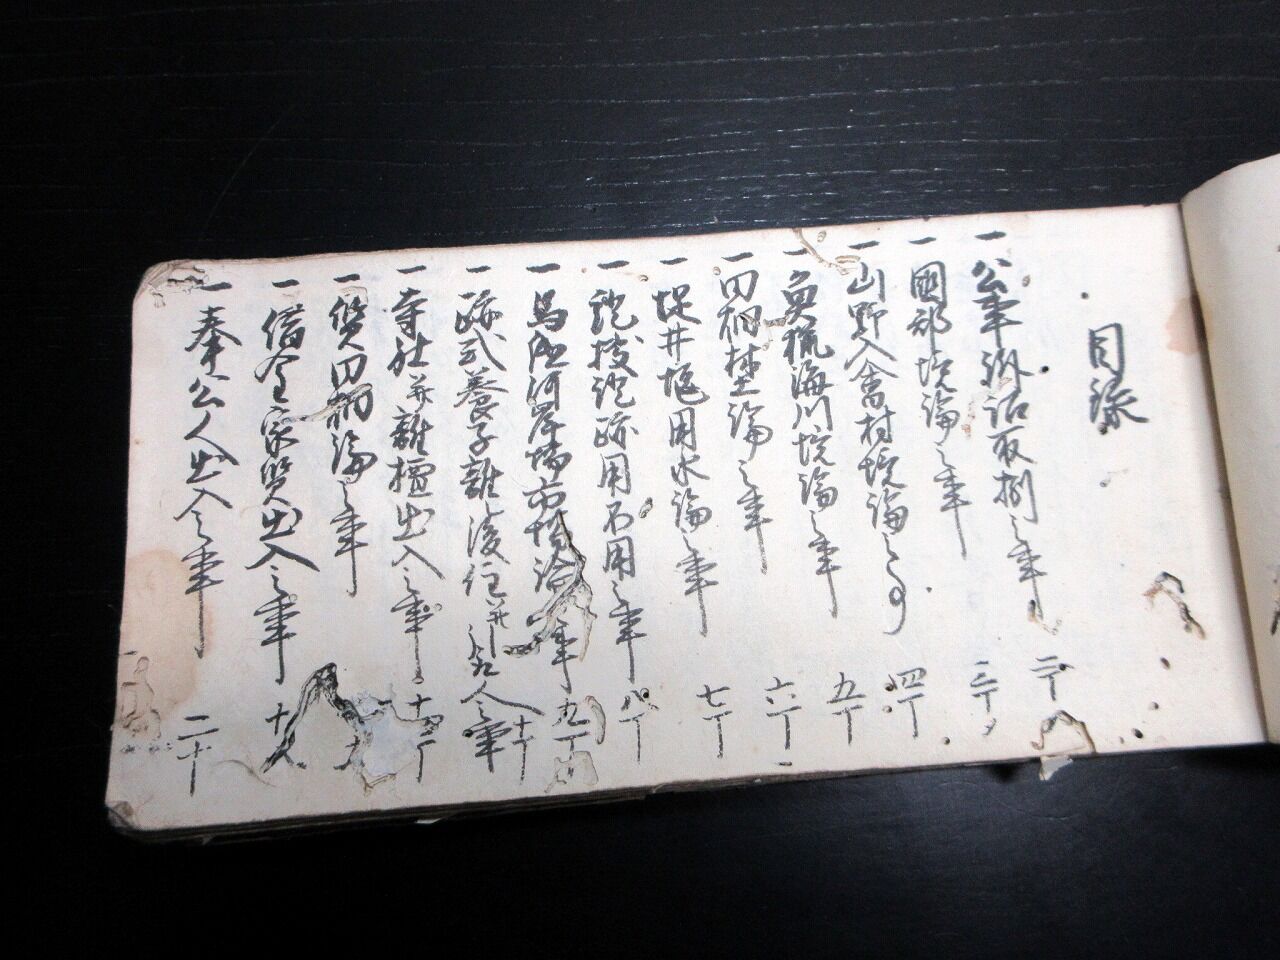 目録
一 公事訴訟取捌之事 二丁
一 國郡境論之事 三丁
一 山野入會村境論之事 四丁
一 魚猟海川境論之事 五丁
一 田畑埜論之事 六丁
一 堤井堰用水論之事 七丁
一 論地用不用之事 八丁
一 馬継河岸場市場論之事 九丁
一 跡式養子離後住并人之事 十丁
一 寺社并離檀出入之事 十四丁
一 質田畑論之事
一 借金家質出入之事 十八
一 奉公人出入之事 二十